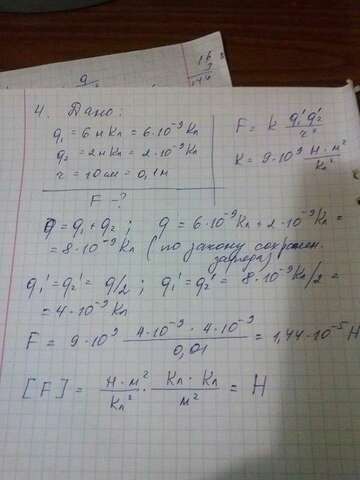 4. Дано:
q₁ = 6 нКл = 6·10⁻⁹ Кл
q₂ = 2 нКл = 2·10⁻⁹ Кл
r = 10 см = 0,1 м
F - ?
F = k q₁' q₂' / r²
K = 9·10⁹ Н·м² / Кл²
q = q₁ + q₂ ; q = 6·10⁻⁹ Кл + 2·10⁻⁹ Кл =
= 8·10⁻⁹ Кл (по закону сохранен.
заряда)
q₁' = q₂' = q/2 ; q₁' = q₂' = 8·10⁻⁹ Кл/2 =
= 4·10⁻⁹ Кл
F = 9·10⁹ 4·10⁻⁹ · 4·10⁻⁹ / 0,01 = 1,44·10⁻⁵ Н
[F] = Н·м² / Кл² · Кл · Кл / м² = Н